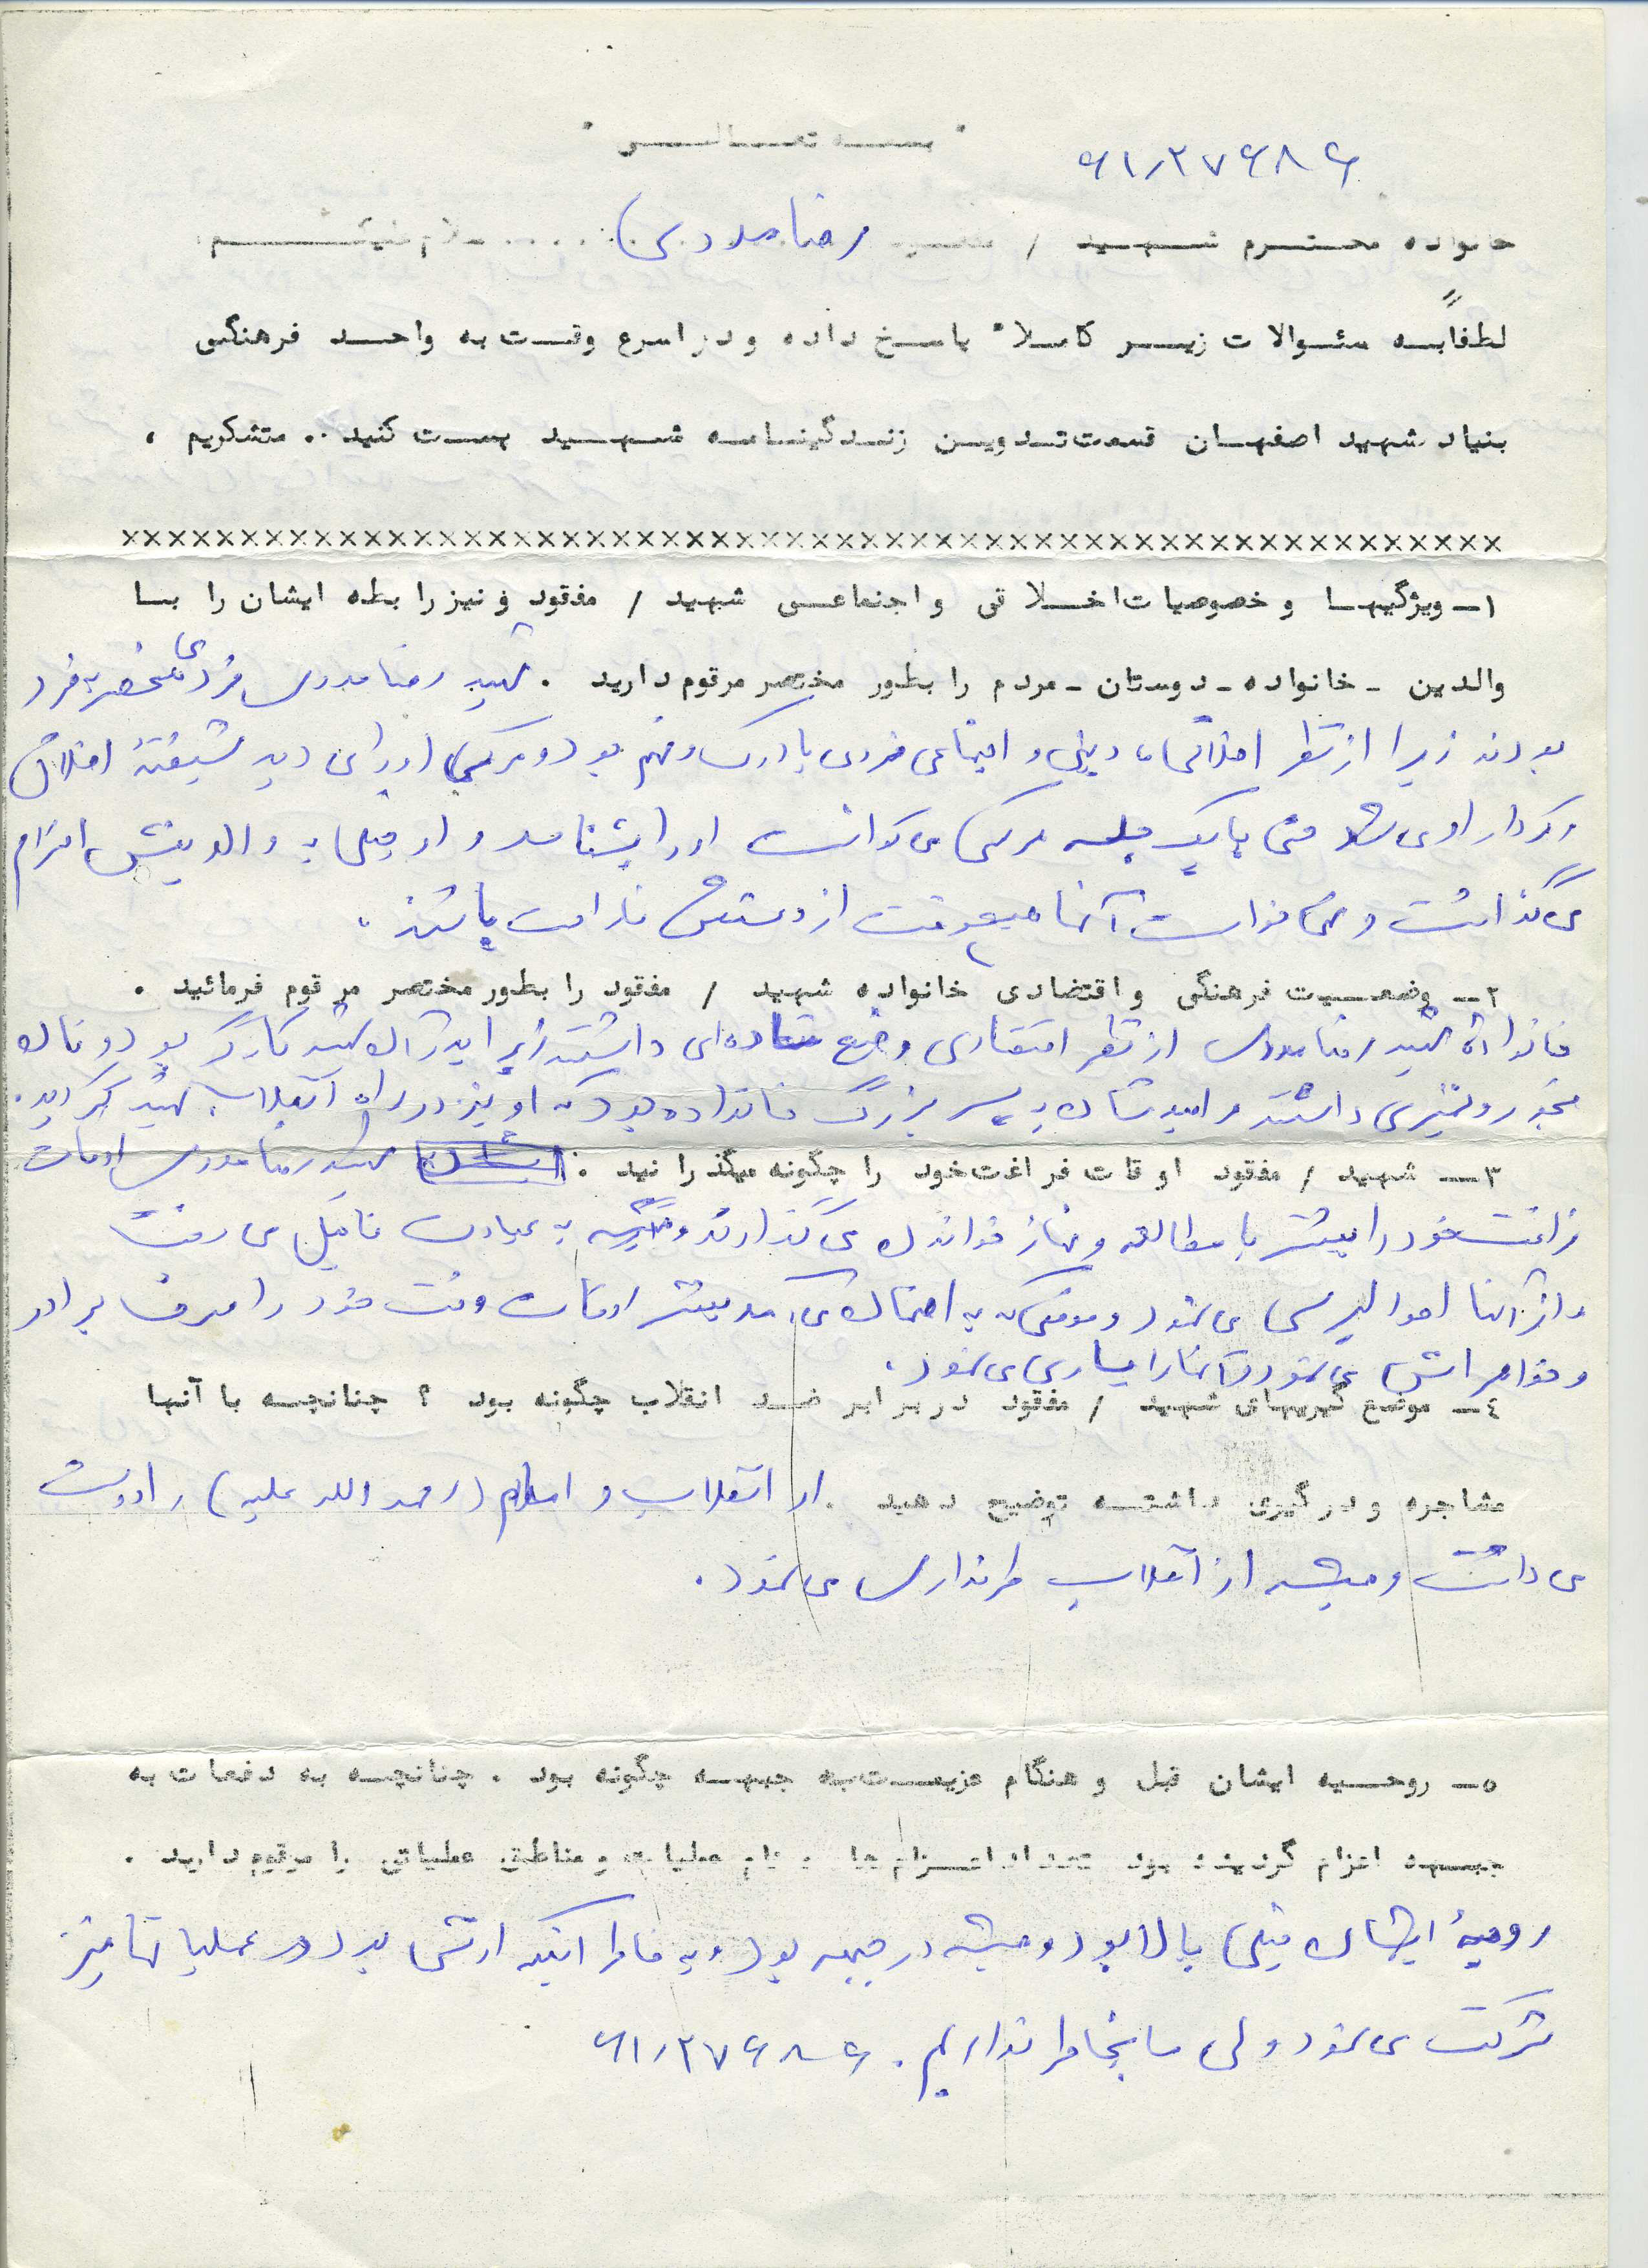 بسمه تعالی
۶۱٫۲۷۶۸۶
خانواده محترم شهید / مفقود رضا مددی سلام علیکم
لطفاً به سئوالات زیر کاملا" پاسخ داده و در اسرع وقت به واحد فرهنگی
بنیاد شهید اصفهان قسمت تدوین زندگینامه شهید پست کنید .. متشکریم .
xxxxxxxxxxxxxxxxxxxxxxxxxxxxxxxxxxxxxxxxxxxxxxxxxxxxxxxx
۱ــ ویژگیها و خصوصیات اخلاقی و اجتماعی شهید / مفقود و نیز رابطه ایشان را با
والدین ـ خانواده ـ دوستان ـ مردم را بطور مختصر مرقوم دارید . شهید رضا مددی فردی منحصر به فرد
بودند زیرا از نظر اخلاقی، دینی و اجتماعی فردی با درک و فهم بود و هر کسی او را می دید شیفتهٔ اخلاق
و کردار او می شد حتی با یک جلسه هر کسی می توانست او را بشناسد و او خیلی به والدینش احترام
می گذاشت و نمی خواست آنها هیچوقت از دستش ناراحت باشند .
۲ــ وضعیت فرهنگی و اقتضادی خانواده شهید / مفقود را بطور مختصر مرقوم فرمائید .
خانوادهٔ شهید رضا مددی از نظر اقتصادی وضع ساده ای داشتند زیرا پدر آن شهید کارگر بود و نان
بخور و نمیری داشتند و امیدشان به پسر بزرگ خانواده بود که او نیز در راه انقلاب شهید گردید.
۳ــ شهید / مفقود اوقات فراغت خود را چگونه میگذرانید : شهید رضا مددی اوقات
فراغت خود را بیشتر با مطالعه و نماز خواندن می گذارند و همیشه به عیادت فامیل می رفت
و از آنها احوالپرسی می نمود و موقعی که به اصفهان می آمد بیشتر اوقات وقت خود را صرف برادر
و خواهرانش می نمود و آنها را یاری می نمود.
٤ــ موضع گیریهای شهید / مفقود در برابر ضد انقلاب چگونه بود ؟ چنانچه با آنها
مشاجره و درگیری داشته توضیح دهید . او انقلاب و امام (رحمه الله علیه) را دوست
می داشت و همیشه از انقلاب طرفداری می نمود.
٥ــ روحیه ایشان قبل و هنگام عزیمت به جبهه چگونه بود . چنانچه به دفعات به
جبهه اعزام گردیده بود تعداد اعزام ها و نام عملیات و مناطق عملیاتی را مرقوم دارید .
روحیهٔ ایشان خیلی بالا بود و همیشه در جبهه بود و به خاطر اینکه ارتشی بود در عملیاتها نیز
شرکت می نمود ولی ما بخاطر نداریم. ۶۱٫۲۷۶۸۶